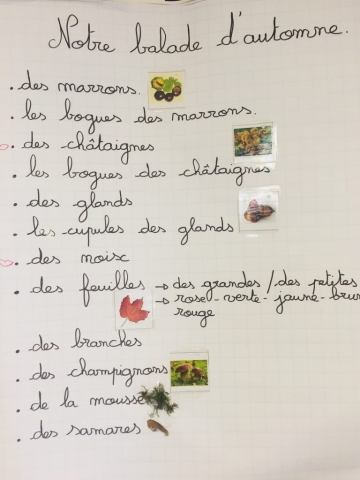 Notre balade d'automne.
. des marrons.
. les bogues des marrons.
. des châtaignes
. les bogues des châtaignes
. des glands
. les cupules des glands
. des moisc
. des feuilles → des grandes / des petites
→ rose - verte - jaune - brun
rouge
. des branches
. des champignons
. de la mousse
. des samares